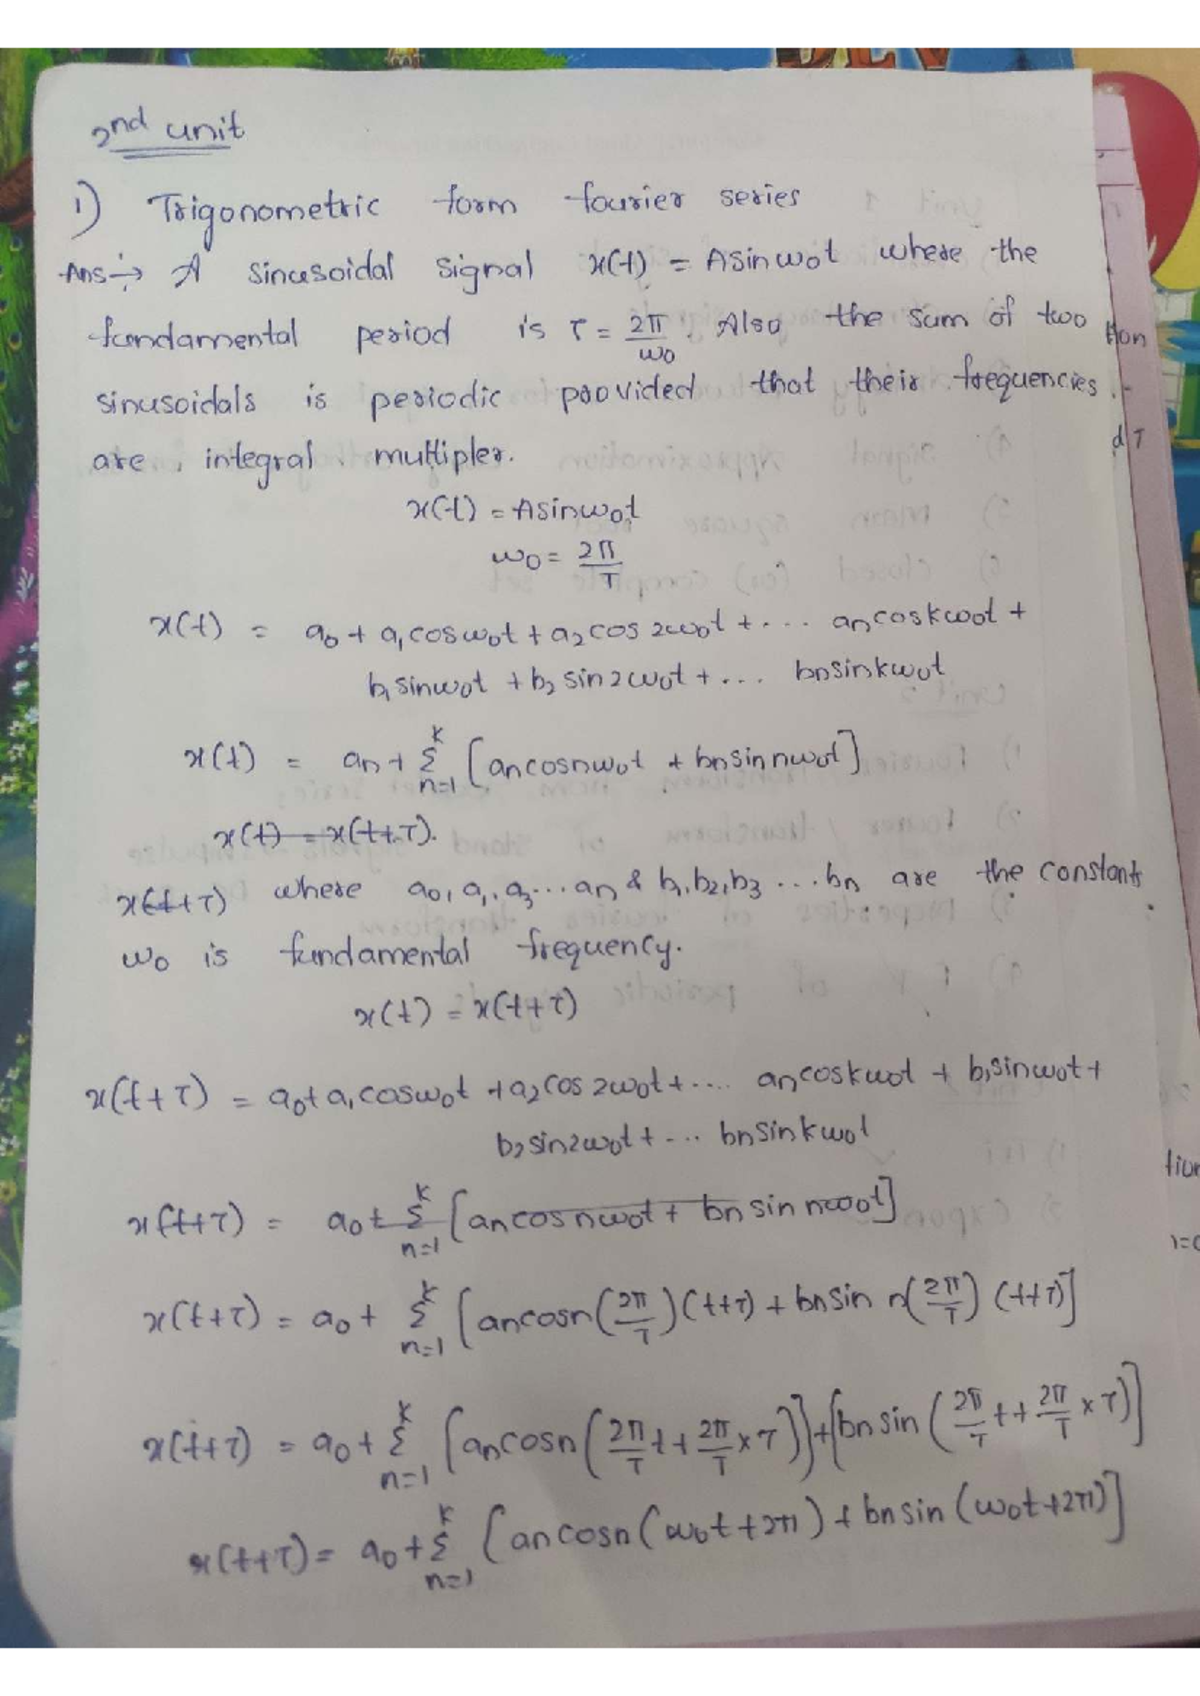 2nd unit
1) Trigonometric form fourier series
Ans:→ A sinusoidal signal x(t) = Asinw0t where the
fundamental period is T = 2π/w0. Also the sum of two
sinusoidals is periodic provided that their frequencies
are integral multipler.
x(t) = Asinw0t
w0 = 2π/T
x(t) = a0 + a1cosw0t + a2cos2w0t + .... ancoskw0t +
b1sinw0t + b2sin2w0t + ... bnsinkw0t
x(t) = an + Σ_{n=1}^{k} [ancosnw0t + bnsinnw0t]
x(t) = x(t+T).
x(t+T) where a0, a1, a3...an & b1,b2,b3 ...bn are the constants
w0 is fundamental frequency.
x(t) = x(t+T)
x(t+T) = a0+a1cosw0t + a2cos2w0t + .... ancoskw0t + b1sinw0t +
b2sin2w0t + ... bnsinkw0t
x(t+T) = a0 + Σ_{n=1}^{k} [ancosnw0t + bnsinnw0t]
x(t+T) = a0 + Σ_{n=1}^{k} [ancosn(2π/T)(t+T) + bnsin n(2π/T)(t+T)]
x(t+T) = a0 + Σ_{n=1}^{k} [ancosn(2π/T t + 2π/T × T)] + [bnsin(2π/T t + 2π/T × T)]
x(t+T) = a0 + Σ_{n=1}^{k} [ancosn(w0t+2π) + bnsin(w0t+2π)]